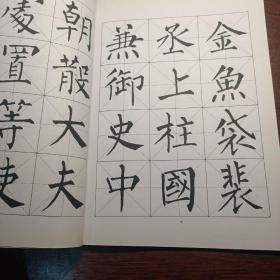 置等使
朝散大夫
兼御史中
丞上柱國
金魚袋裴